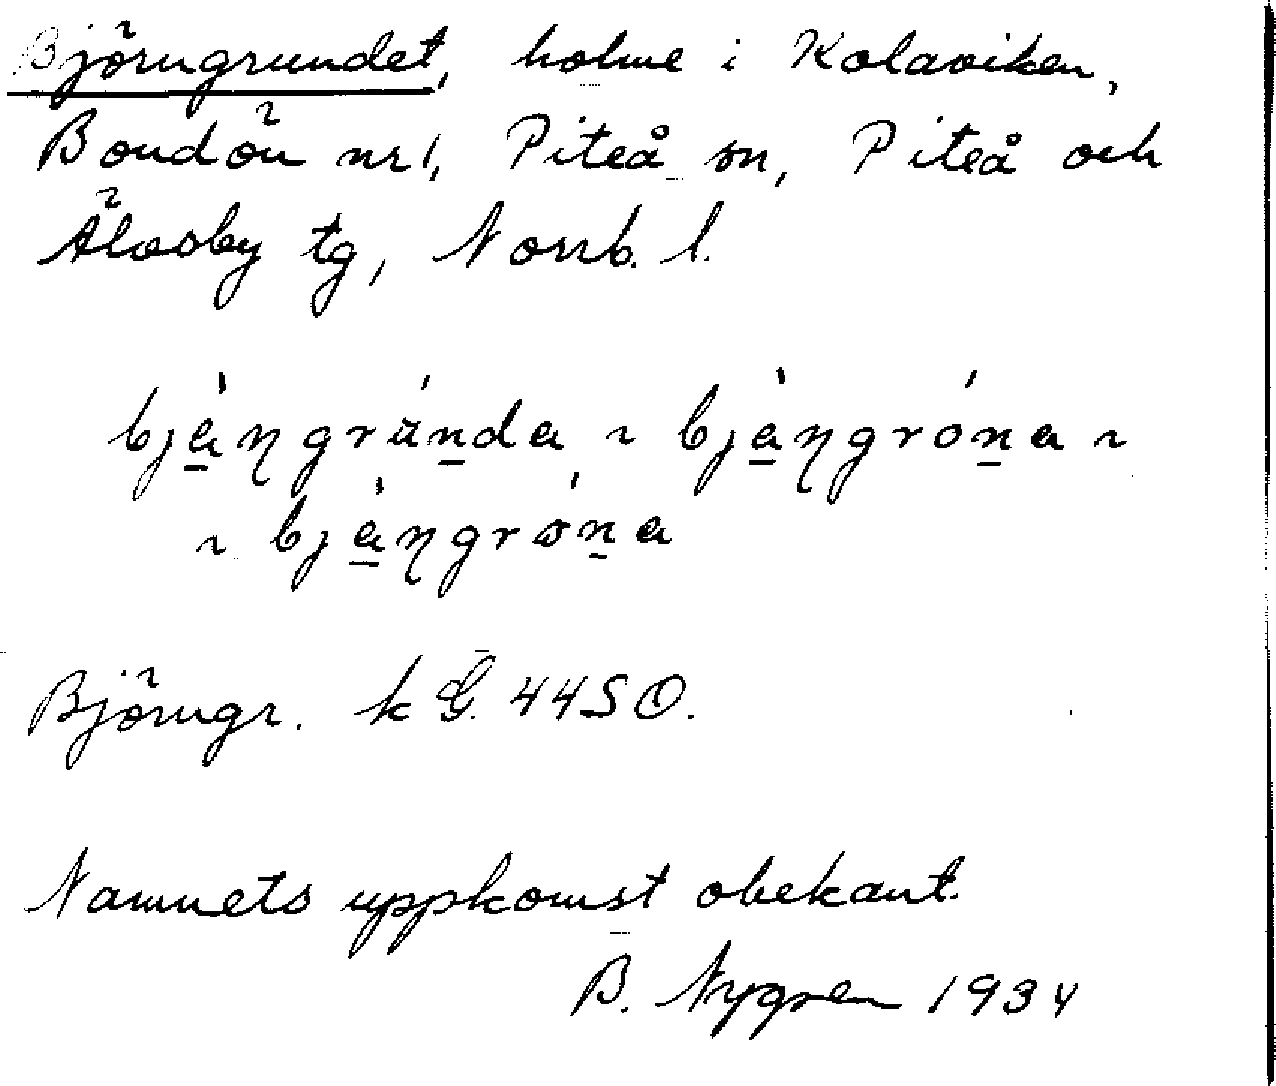 Björngrundet, holme i Kolaviken,
Bondön nr 1, Piteå sn, Piteå och
Älvsby tg, Norrb. l.
bjängrúnda ~ bjängróna ~
~ bjängróna
Björngr. k G. 44 SO.
Namnets uppkomst obekant.
B. Nygren 1934